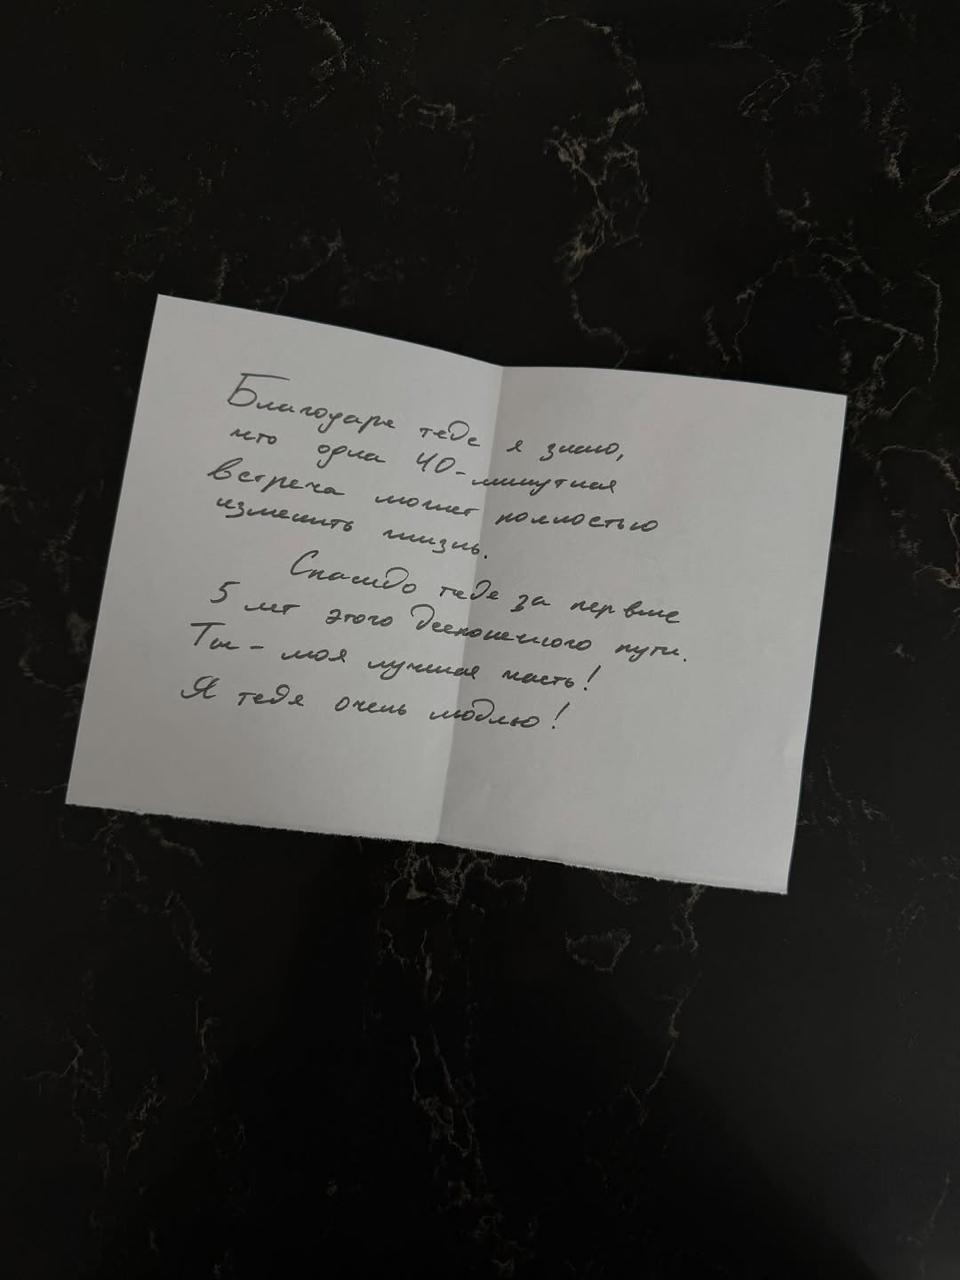 Благодаря тебе я знаю,
что одна 40-минутная
встреча может полностью
изменить жизнь.
Спасибо тебе за первые
5 лет этого бесконечного пути.
Ты - моя лучшая часть!
Я тебя очень люблю!